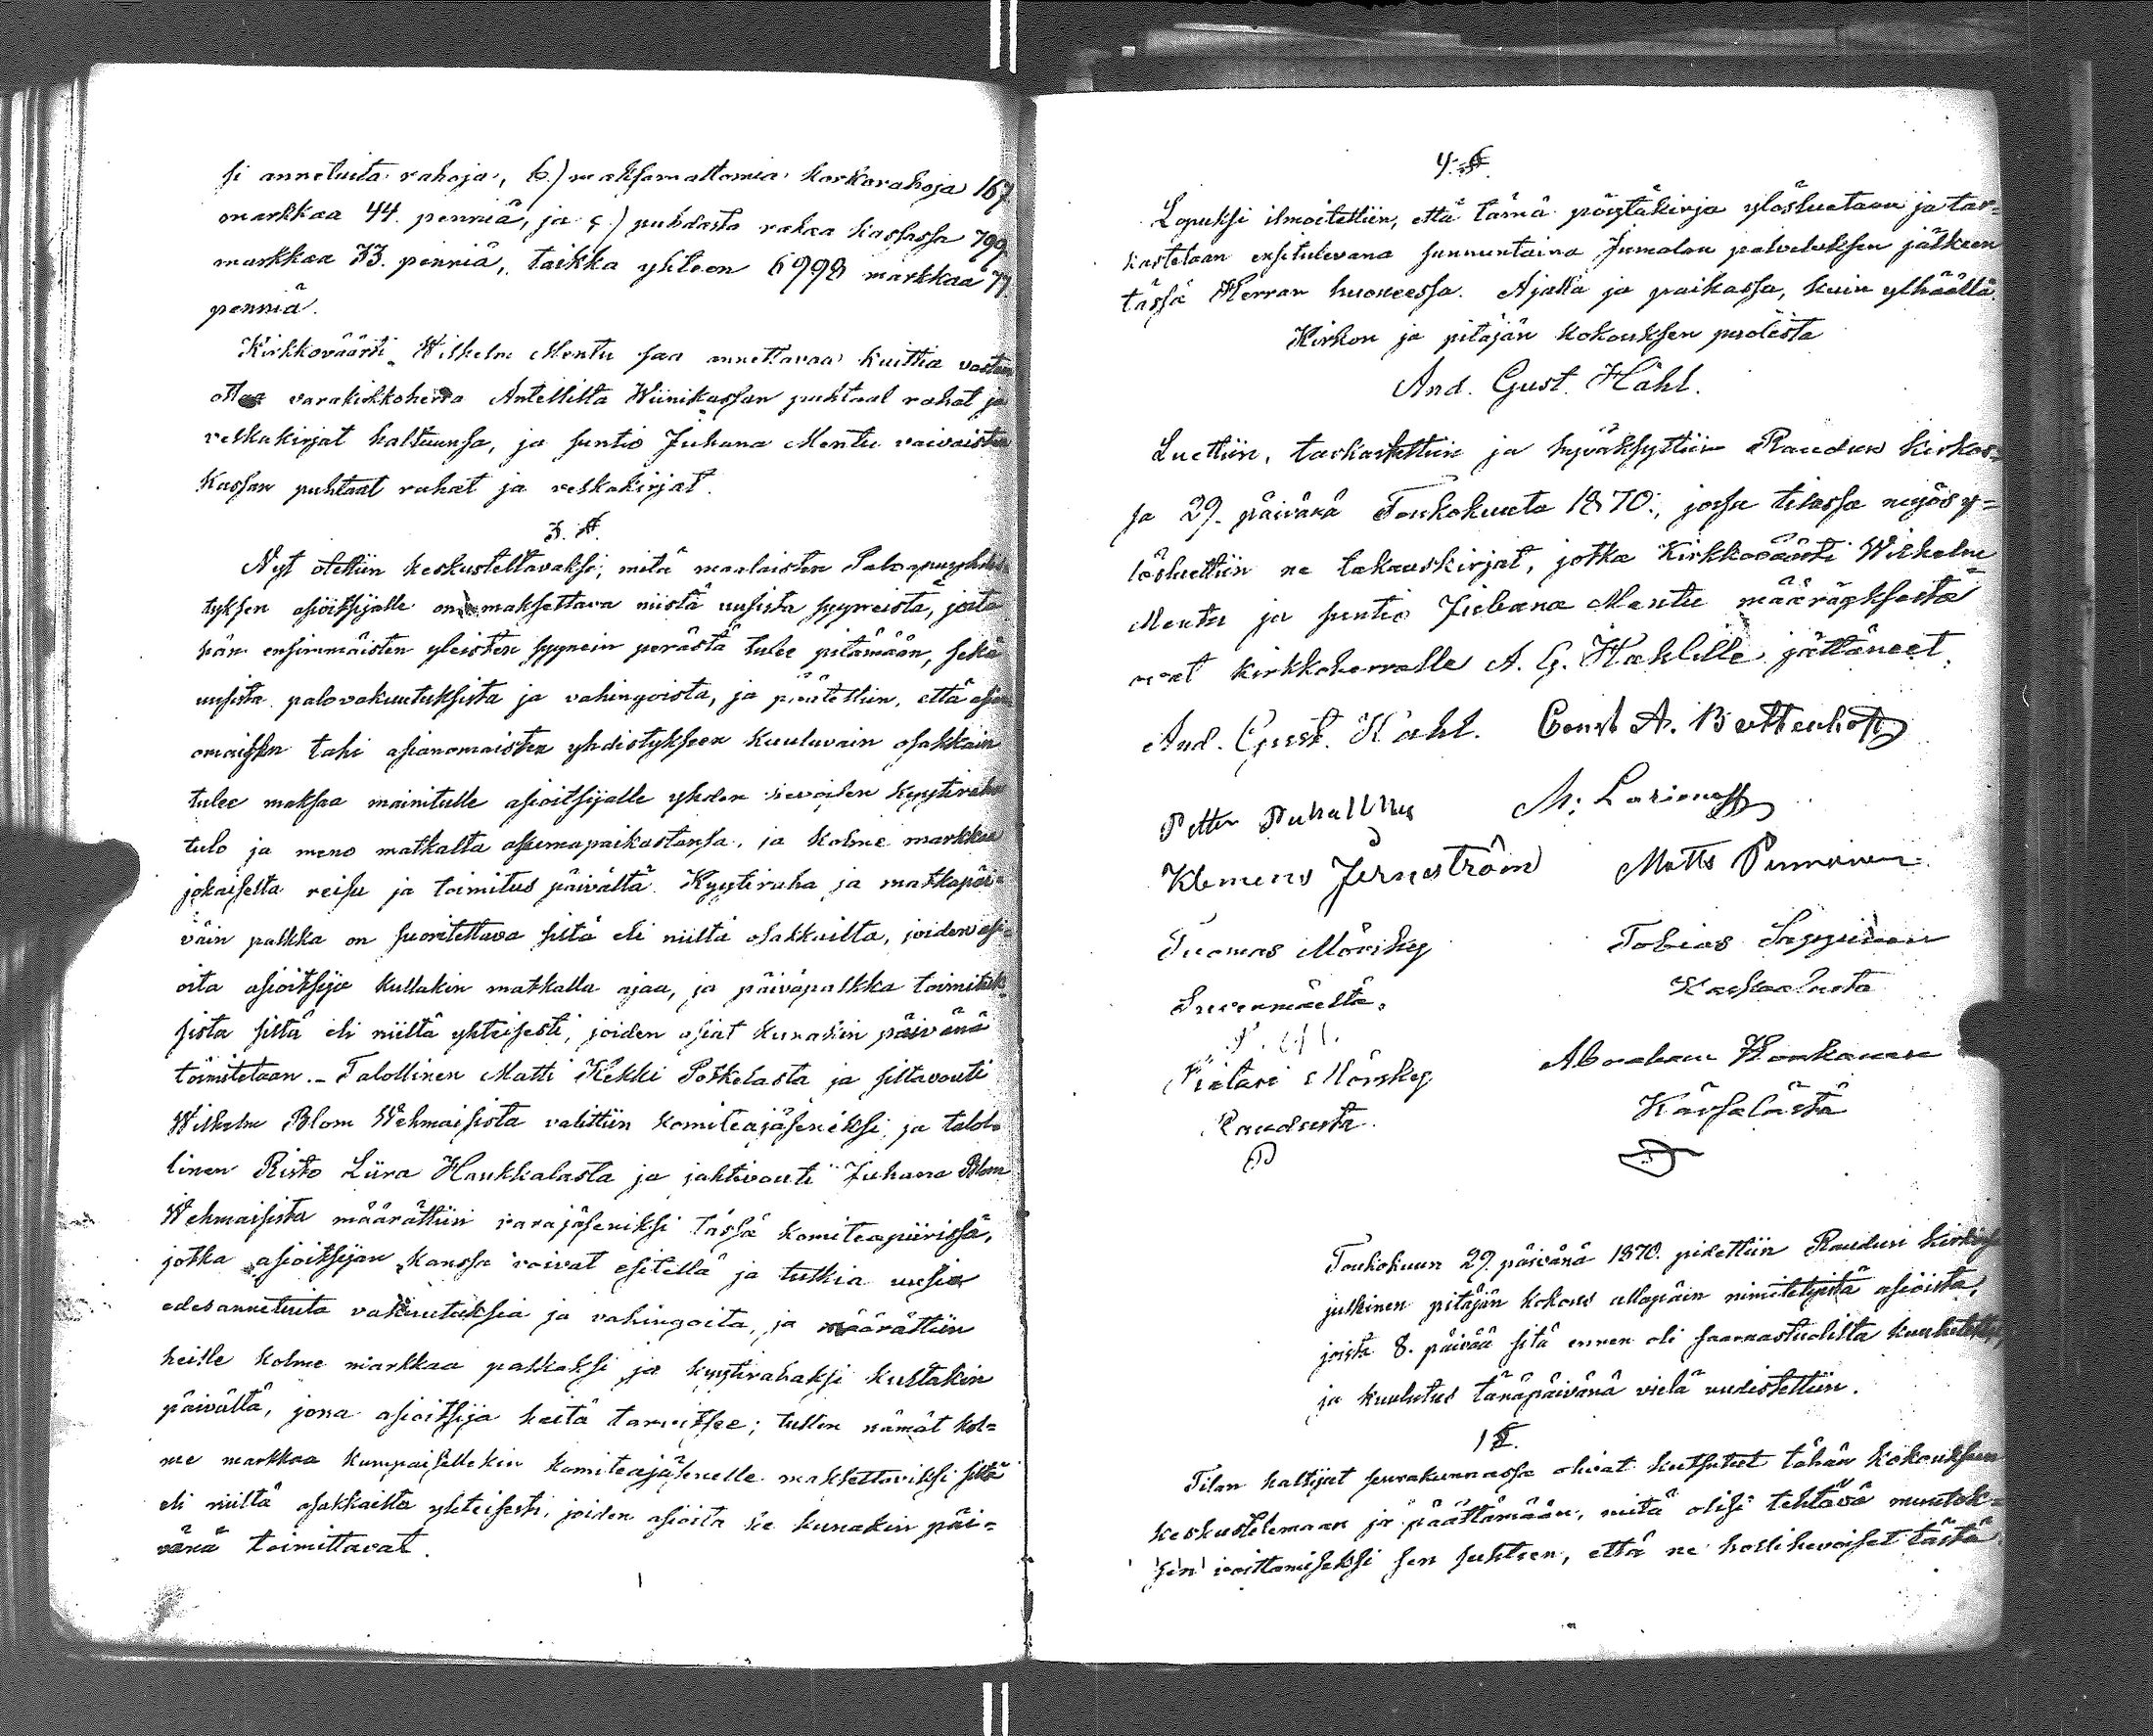 si annetuita rahoja, b.) maksamattomia korkorahoja 167
markkaa 44. penniä, ja c.) puhdasta rahaa kassassa 799
markkaa 33. penniä, taikka yhteen 6998 markkaa 77
penniä.
Kirkkoväärti Wilhelm Mentu saa annettavaa kuittia vastan
ottaa varakirkkoherra Antellilta Wiinikassan puhtaat rahat ja
velkakirjat haltuunsa, ja suntio Juhana Mentu vaivaisten
kassan puhtaat rahat ja velkakirjat.
3. §.
Nyt otettiin keskusteltavaksi, mitä maalaisten Paloapuyhdis
tyksen asioitsijalle on maksettava niistä uusista syyneistä, joita
hän ensimmäisten yleisten syynein perästä tulee pitämään, sekä
uusista palovakuutuksista ja vahingoista, ja päätettiin, että asian
omaisen tahi asianomaisten yhdistykseen kuuluvain osakkain
tulee maksaa mainitulle asioitsijalle yhden hevoisen kyytiraha
tulo ja meno matkalta asumapaikastansa, ja kolme markkaa
jokaiselta reisu ja toimitus päivältä. Kyytiraha ja matkapäi-
väin palkka on suoritettava siltä eli niiltä osakkailta, joiden asi-
oita asioitsija kullakin matkalla ajaa, ja päiväpalkka toimituk-
sista siltä eli niiltä yhteisesti, joiden asiat kunakin päivänä
toimitetaan. – Talollinen Matti Kekki Poskelasta ja siltavouti
Wilhelm Blom Wehmaisista valittiin komiteajäseneiksi ja talol-
linen Risto Liira Haukkalasta ja jahtivouti Juhana Blom
Wehmaisista määrättiin varajäseniksi tässä komiteapiirissä,
jotka asioitsijan kanssa voivat esitellä ja tutkia uusia
edesannetuita vakuutuksia ja vahingoita, ja määrättiin
heille kolme markkaa palkaksi ja kyytirahaksi kultakin
päivältä, jona asioitsija heitä tarvitsee; tullen nämät kol=
me markkaa kumpaisellekin komiteajäsenelle maksettaviksi siltä
eli niiltä osakkailta yhteisesti, joiden asioita he kunakin päi=
vänä toimittavat.
4. §.
Lopuksi ilmoitettiin, että tämä pöytäkirja ylösluetaan ja tar=
kastetaan ensitulevana sunnuntaina Jumalan palveluksen jälkeen
tässä Herran huoneessa. Ajalla ja paikassa, kuin ylhäällä.
Kirkon ja pitäjän kokouksen puolesta
And. Gust. Hahl.
Luettiin, tarkastettiin ja hyväksyttiin Raudun kirkos=
sa 29. päivänä Toukokuuta 1870., jossa tilassa myös y=
lösluettiin ne takauskirjat, jotka Kirkkoväärti Wilhelm
Mentu ja suntio Juhana Mentu määräyksestä
ovat kirkkoherralle A. G. Hahlille jättäneet.
And. Gust. Hahl. Const A.
Petter M. Larionoff
Klemens Jernström Matts
Tuomas Mörsky Tobias
Suvenmäeltä.
Pietari Mörsky Abraham Honkanen
Raudusta.
Toukokuun 29. päivänä 1870. pidettiin Raudun kirkossa
julkinen pitäjän kokous allapäin nimitetyistä asioista,
joista 8. päivää sitä ennen oli saarnastuolilta kuulutettu,
ja kuulutus tänäpäivänä vielä uudistettiin.
1 §.
Tilan haltijat seurakunnassa olivat kutsutut tähän kokouksen
keskustelemaan ja päättämään, mitä olisi tehtävä muutok=
sen voittamiseksi sen suhteen, että ne hollihevoiset tästä